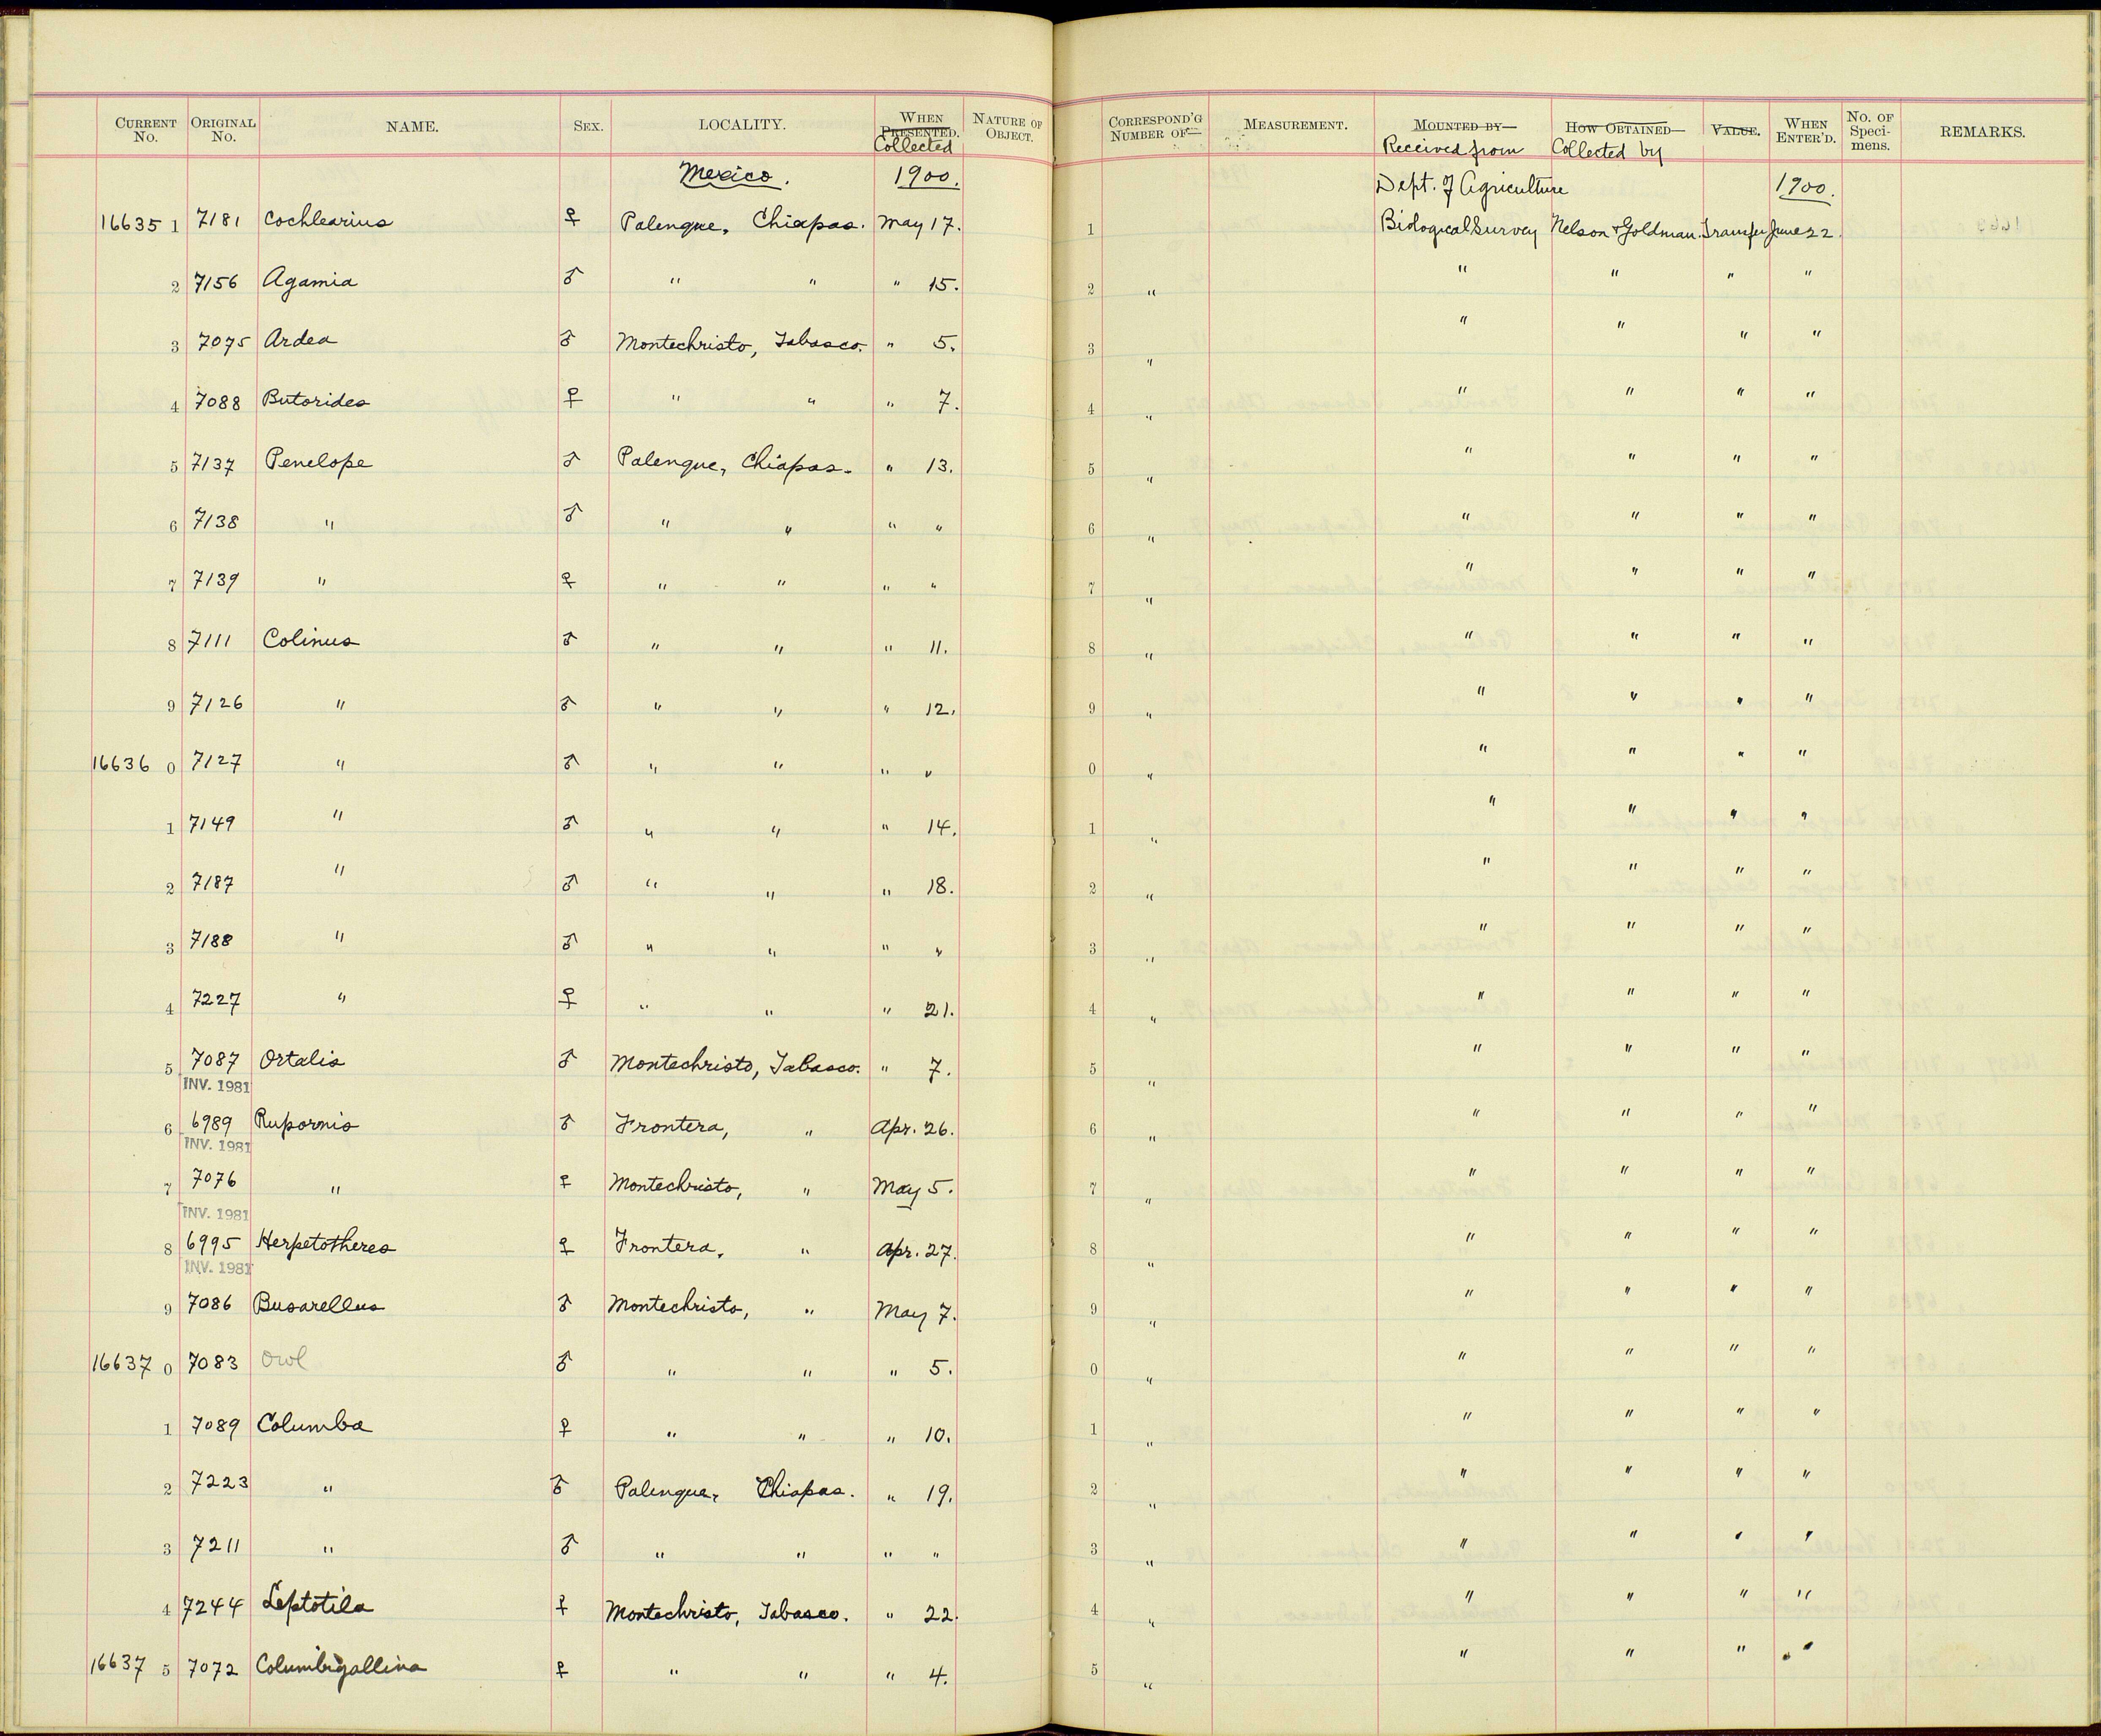 CURRENT No. ORIGINAL No. NAME. SEX. LOCALITY. WHEN PRESENTED. Collected NATURE OF OBJECT. CORRESPOND'G NUMBER OF— MEASUREMENT. MOUNTED BY— Received from HOW OBTAINED— Collected by VALUE. WHEN ENTER'D. No. OF Speci- mens. REMARKS.
Mexico. 1900. Dept. of Agriculture 1900.
16635 1 7181 Cochlearius ♀ Palenque, Chiapas. May 17. 1 Biological Survey Nelson & Goldman. Transfer June 22.
2 7156 Agamia ♂ " " " 15. 2 " " " " "
3 7075 Ardea ♂ Montechristo, Tabasco. " 5. 3 " " " " "
4 7088 Butorides ♀ " " " 7. 4 " " " " "
5 7137 Penelope ♂ Palenque, Chiapas. " 13. 5 " " " " "
6 7138 " ♂ " " " " 6 " " " " "
7 7139 " ♀ " " " " 7 " " " " "
8 7111 Colinus ♂ " " " 11. 8 " " " " "
9 7126 " ♂ " " " 12. 9 " " " " "
16636 0 7127 " ♂ " " " " 0 " " " " "
1 7149 " ♂ " " " 14. 1 " " " " "
2 7187 " ♂ " " " 18. 2 " " " " "
3 7188 " ♂ " " " " 3 " " " " "
4 7227 " ♀ " " " 21. 4 " " " " "
5 7087 Ortalis ♂ Montechristo, Tabasco. " 7. 5 " " " " "
INV. 1981
6 6989 Rupornis ♂ Frontera, " Apr. 26. 6 " " " " "
INV. 1981
7 7076 " ♀ Montechristo, " May 5. 7 " " " " "
INV. 1981
8 6995 Herpetotheres ♀ Frontera, " Apr. 27. 8 " " " " "
INV. 1981
9 7086 Busarellus ♂ Montechristo, " May 7. 9 " " " " "
16637 0 7083 Owl ♂ " " " 5. 0 " " " " "
1 7089 Columba ♀ " " " 10. 1 " " " " "
2 7223 " ♂ Palenque, Chiapas. " 19. 2 " " " " "
3 7211 " ♂ " " " " 3 " " " " "
4 7244 Leptotila ♀ Montechristo, Tabasco. " 22. 4 " " " " "
16637 5 7072 Columbigallina ♀ " " " 4. 5 " " " " "